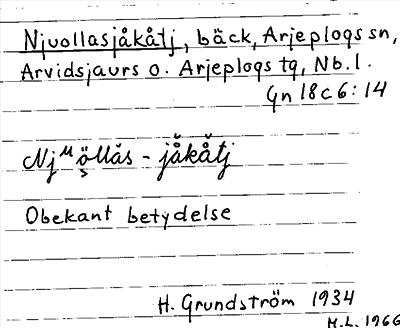 Njuollasjåkåtj, bäck, Arjeplogs sn,
Arvidsjaurs o. Arjeplogs tg, Nb. l.
Gn 18 c 6: 14
Njᵘöllås - jåkåtj
Obekant betydelse
H. Grundström 1934
M.L. 1966